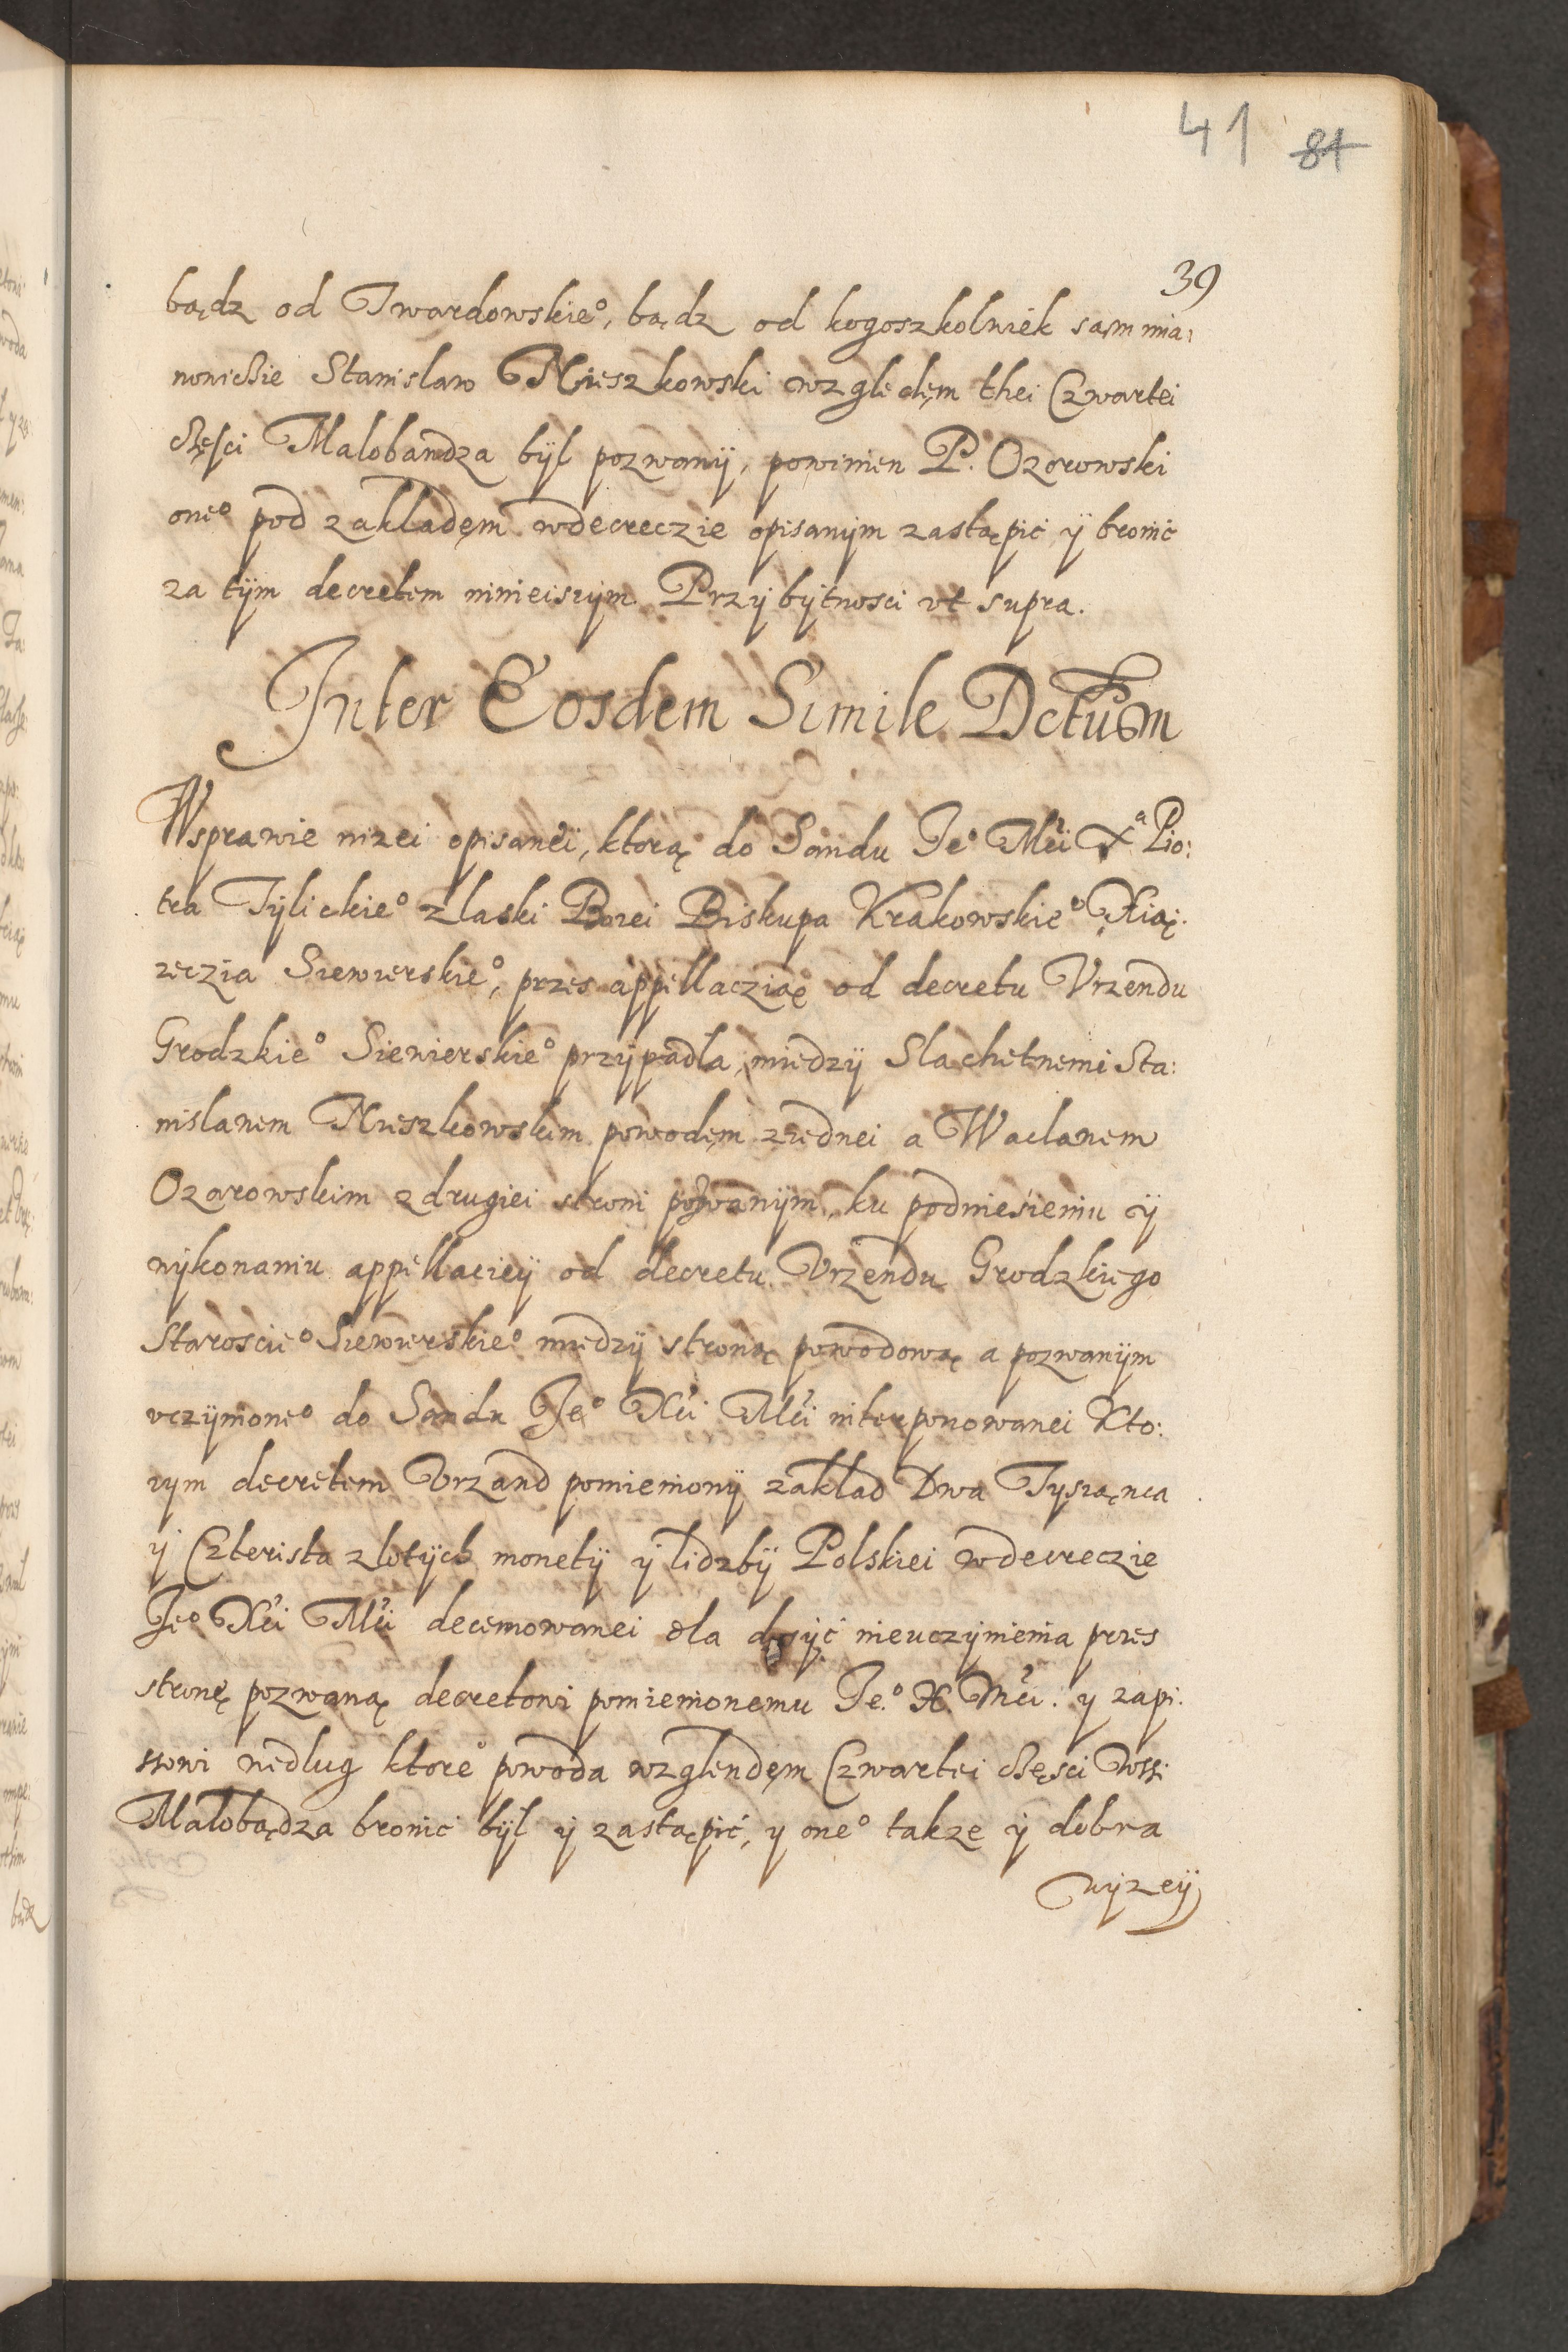 41 84
39
bądz od Twardowskieº, bądz od kogoszkolwiek sam mia:
nowiczie Stanislaw Nieszkowski względęm thei Czwartei
częsci Malobandza był pozwanÿ, powinien P. Ozorowski
oneº pod zakladęm wdecreczie opisanÿm zastąpić ÿ bronić
za tÿm decretem ninieiszym. Przÿ bÿtnosci vt supra.
Inter Eosdem Simile Dctum
Wsprawie nizei opisaneÿ, ktorą do Sandu Jeº Mći Xª Pio:
tra Tÿlickieº zlaski Bozei Biskupa Krakowskieº Xią:
zęczia Siewierskieº, przes appellacziąę od decretu Vrzendu
Grodzkieº Siewierskieº przÿpadla, między Slachetnemi Sta:
nislawem Nieszkowskim powodęm ziednei a Waclawem
Ozarowskim zdrugiei stroni pozwanÿm, ku podniesieniu ÿ
wÿkonaniu appellaciey od decretu Vrzendu Grodzkiego
Starościeº Siewierskieº międzÿ stroną powodową a pozwanÿm
vczÿnioneº do Sandu Jeº Xći Mći interponowanei Kto:
rym decretem Vrzand pomienionÿ zaklad Dwa Tysiąnca
ÿ Czterista zlotÿch monetÿ ÿ lidzbÿ Polskiei wdecreczie
Jeº Xći Mći decernowanei dla dosÿć nieuczÿnienia przes
stronę pozwaną decretowi pomienionemu Je.º X. Mći. y zapi:
ssowi wedlug ktoreº powoda wzglendęm Czwartei częsci Wsi
Malobądza bronic bÿl ÿ zastąpić, y oneº takze ÿ dobra
wÿzeÿ